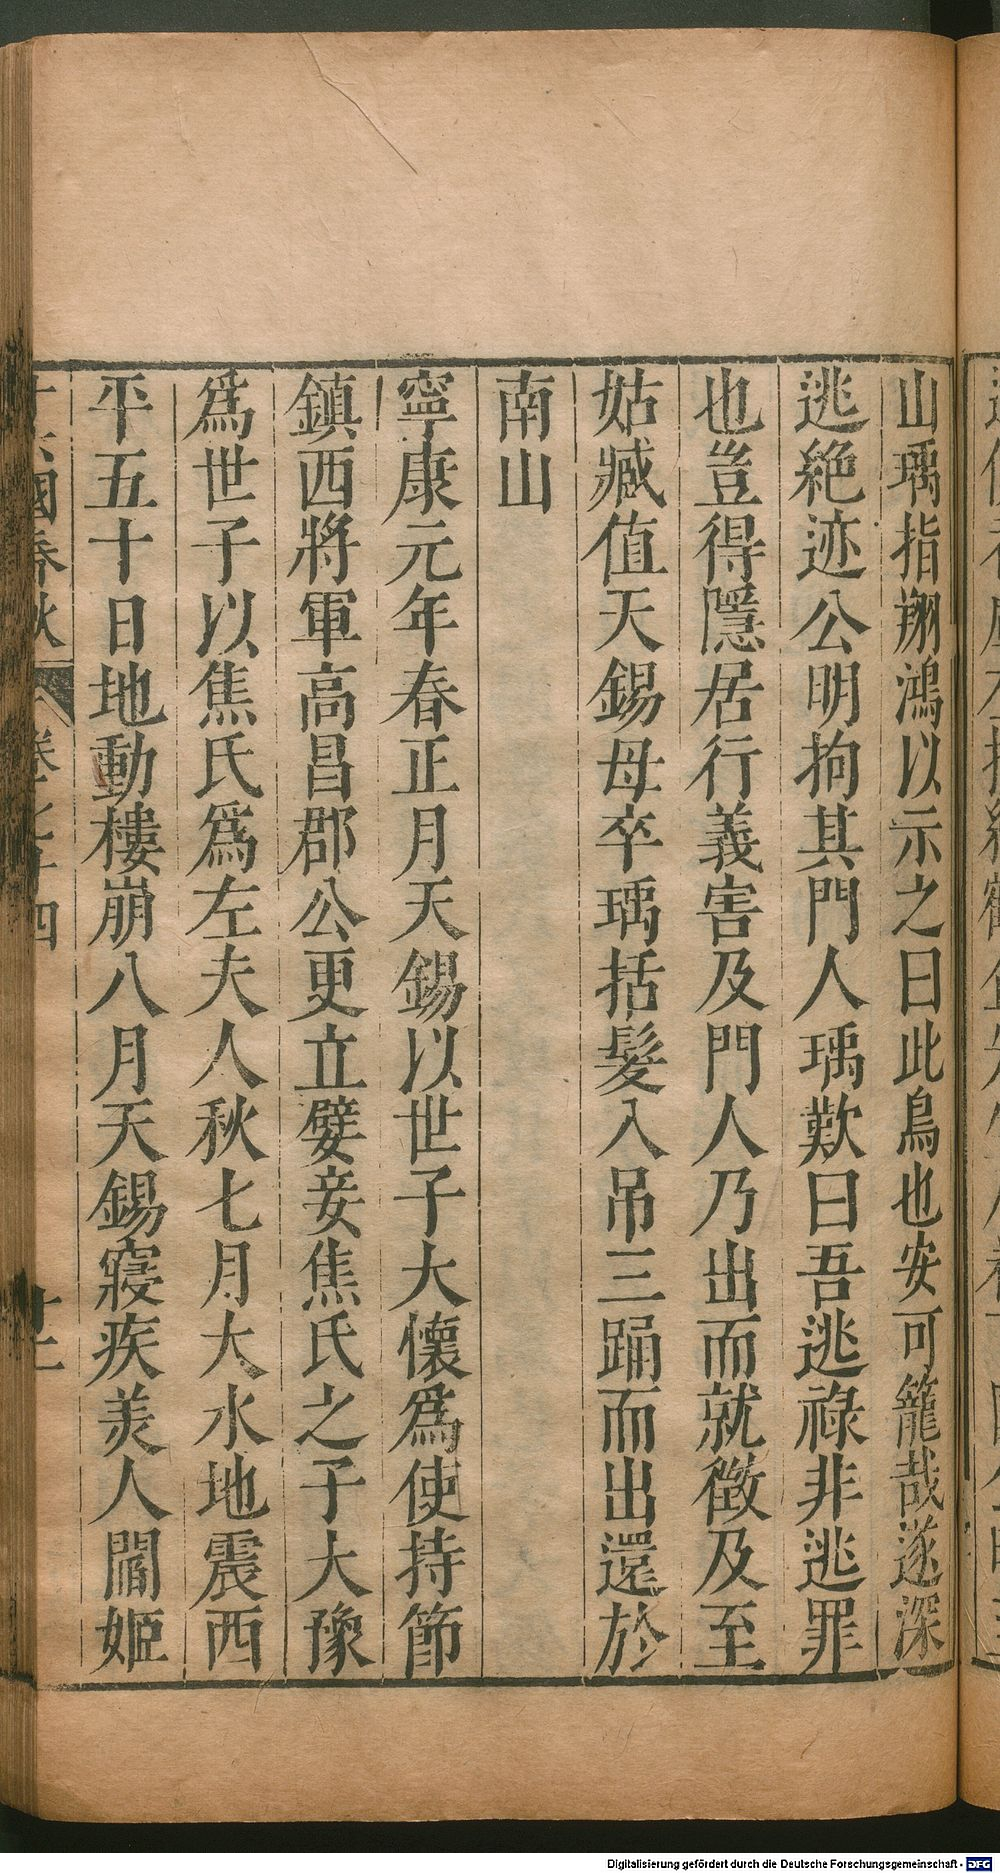 山瑀指翔鴻以示之曰此鳥也安可籠哉遂深
逃絶迹公明拘其門人瑀歎曰吾逃祿非逃罪
也豈得隱居行義害及門人乃出而就徵及至
姑臧值天錫母卒瑀括髮入吊三踊而出還於
南山
寧康元年春正月天錫以世子大懷爲使持節
鎮西將軍高昌郡公更立嬖妾焦氏之子大豫
爲世子以焦氏爲左夫人秋七月大水地震西
平五十日地動樓崩八月天錫寢疾美人閻姬
國春秋 卷七十四
Digitalisierung gefördert durch die Deutsche Forschungsgemeinschaft - DFG